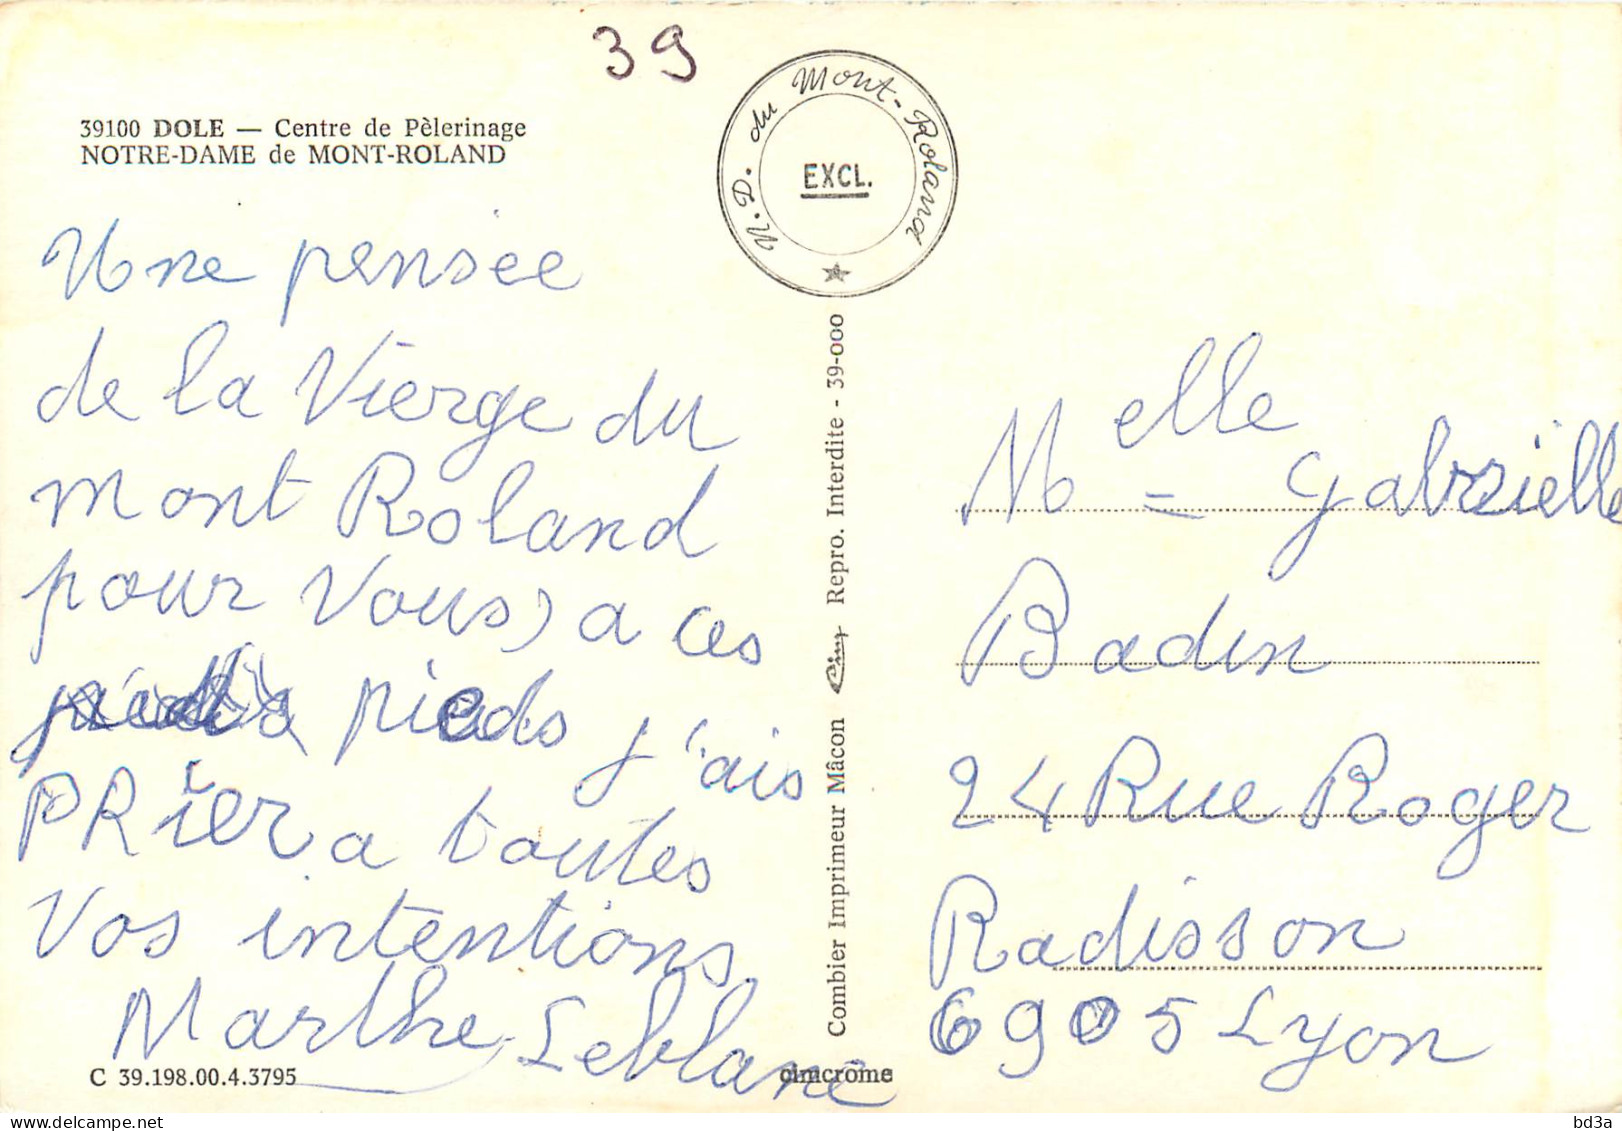 39
39100 DOLE — Centre de Pèlerinage
NOTRE-DAME de MONT-ROLAND
N.D. du Mont-Roland
EXCL.
Une pensée
de la Vierge du
mont Roland
pour Vous, a ces
pieds j'ais
PRier a toutes
Vos intentions
Marthe Leblanc
C 39.198.00.4.3795
Combier Imprimeur Mâcon Cim Repro. Interdite - 39-000
cimcrome
Melle = Gabrielle
Badin
24 Rue Roger
Radisson
6905 Lyon
bd3a